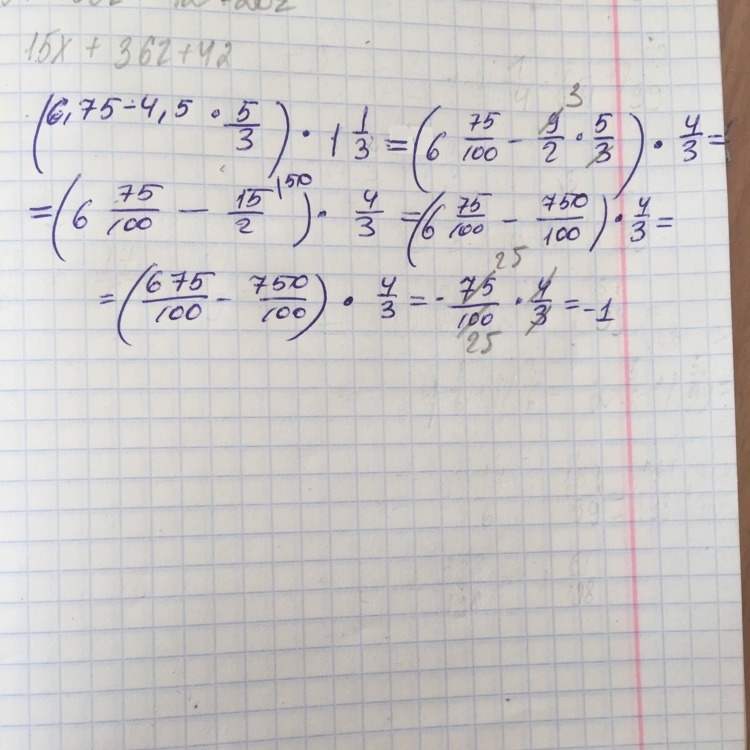 15x + 36z + 42
(6,75 - 4,5 · 5/3) · 1 1/3 = (6 75/100 - 9/2 · 5/3) · 4/3 =
3
= (6 75/100 - 15/2) · 4/3 = (6 75/100 - 750/100) · 4/3 =
= (675/100 - 750/100) · 4/3 = - 75/100 · 4/3 = -1
25
25